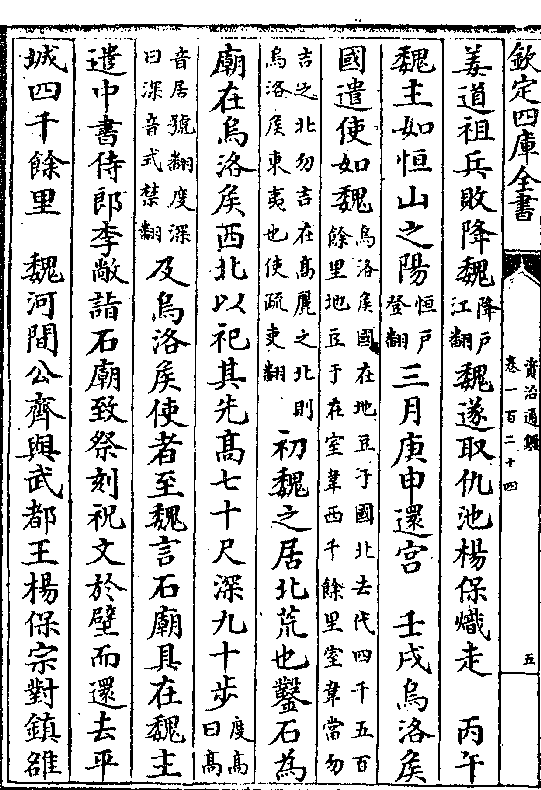 欽定四庫全書 資治通鑑 卷一百二十四 五
姜道祖兵敗降魏降户江翻魏遂取仇池楊保熾走 丙午
魏主如恒山之陽恒户登翻三月庚申還宫 壬戌烏洛侯
國遣使如魏烏洛侯國在地豆于國北去代四千五百餘里地豆于在室韋西千餘里室韋當勿
吉之北勿吉在高麗之北則烏洛侯東夷也使疏吏翻初魏之居北荒也鑿石為
廟在烏洛侯西北以祀其先高七十尺深九十步度高曰高
音居號翻度深曰深音式禁翻及烏洛侯使者至魏言石廟具在魏主
遣中書侍郎李敞詣石廟致祭刻祝文於壁而還去平
城四千餘里 魏河間公齊與武都王楊保宗對鎮雒